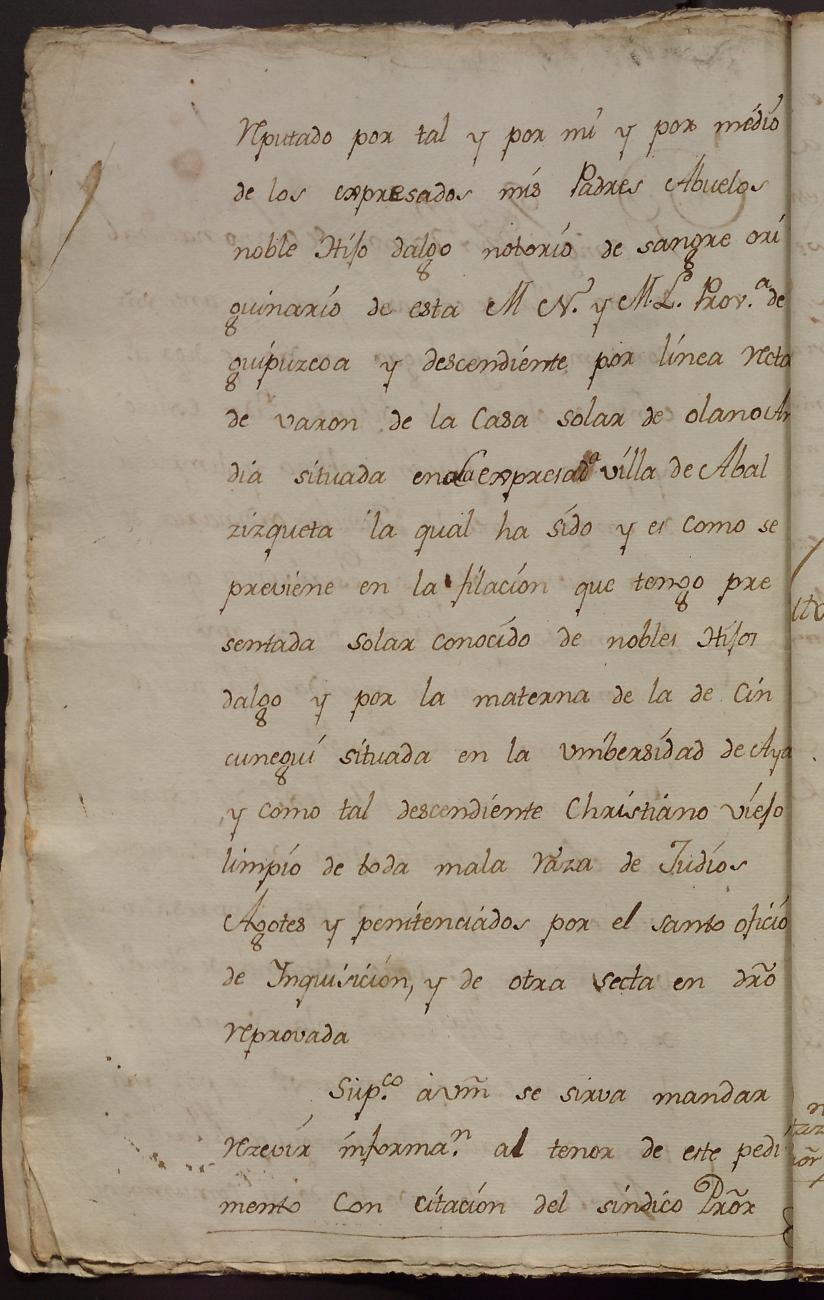 Reputado por tal y por mi y por medio
de los expresados mis Padres Abuelos
noble Hijo dalgo notorio de sangre ori
guinario de esta M N. y M. L. Prov.ª de
guipuzcoa y descendiente por línea recta
de varon de la Casa solar de olano Ar
dia situada en la expresadª villa de Abal
zizqueta la qual ha sido y es como se
previene en la filacion que tengo pre
sentada solar conocido de nobles Hijos
dalgo y por la materna de la de Cin
cunegui situada en la Vnibersidad de Aya
y como tal descendiente Christiano viejo
limpio de toda mala raza de Judios
Agotes y penitenciados por el santo oficio
de Inquisicion, y de otra secta en dr̃o
reprovada
Sup.co à Vm̃ se sirva mandar
rezevir informa.n al tenor de este pedi
mento Con citacion del sindico Pr̃or